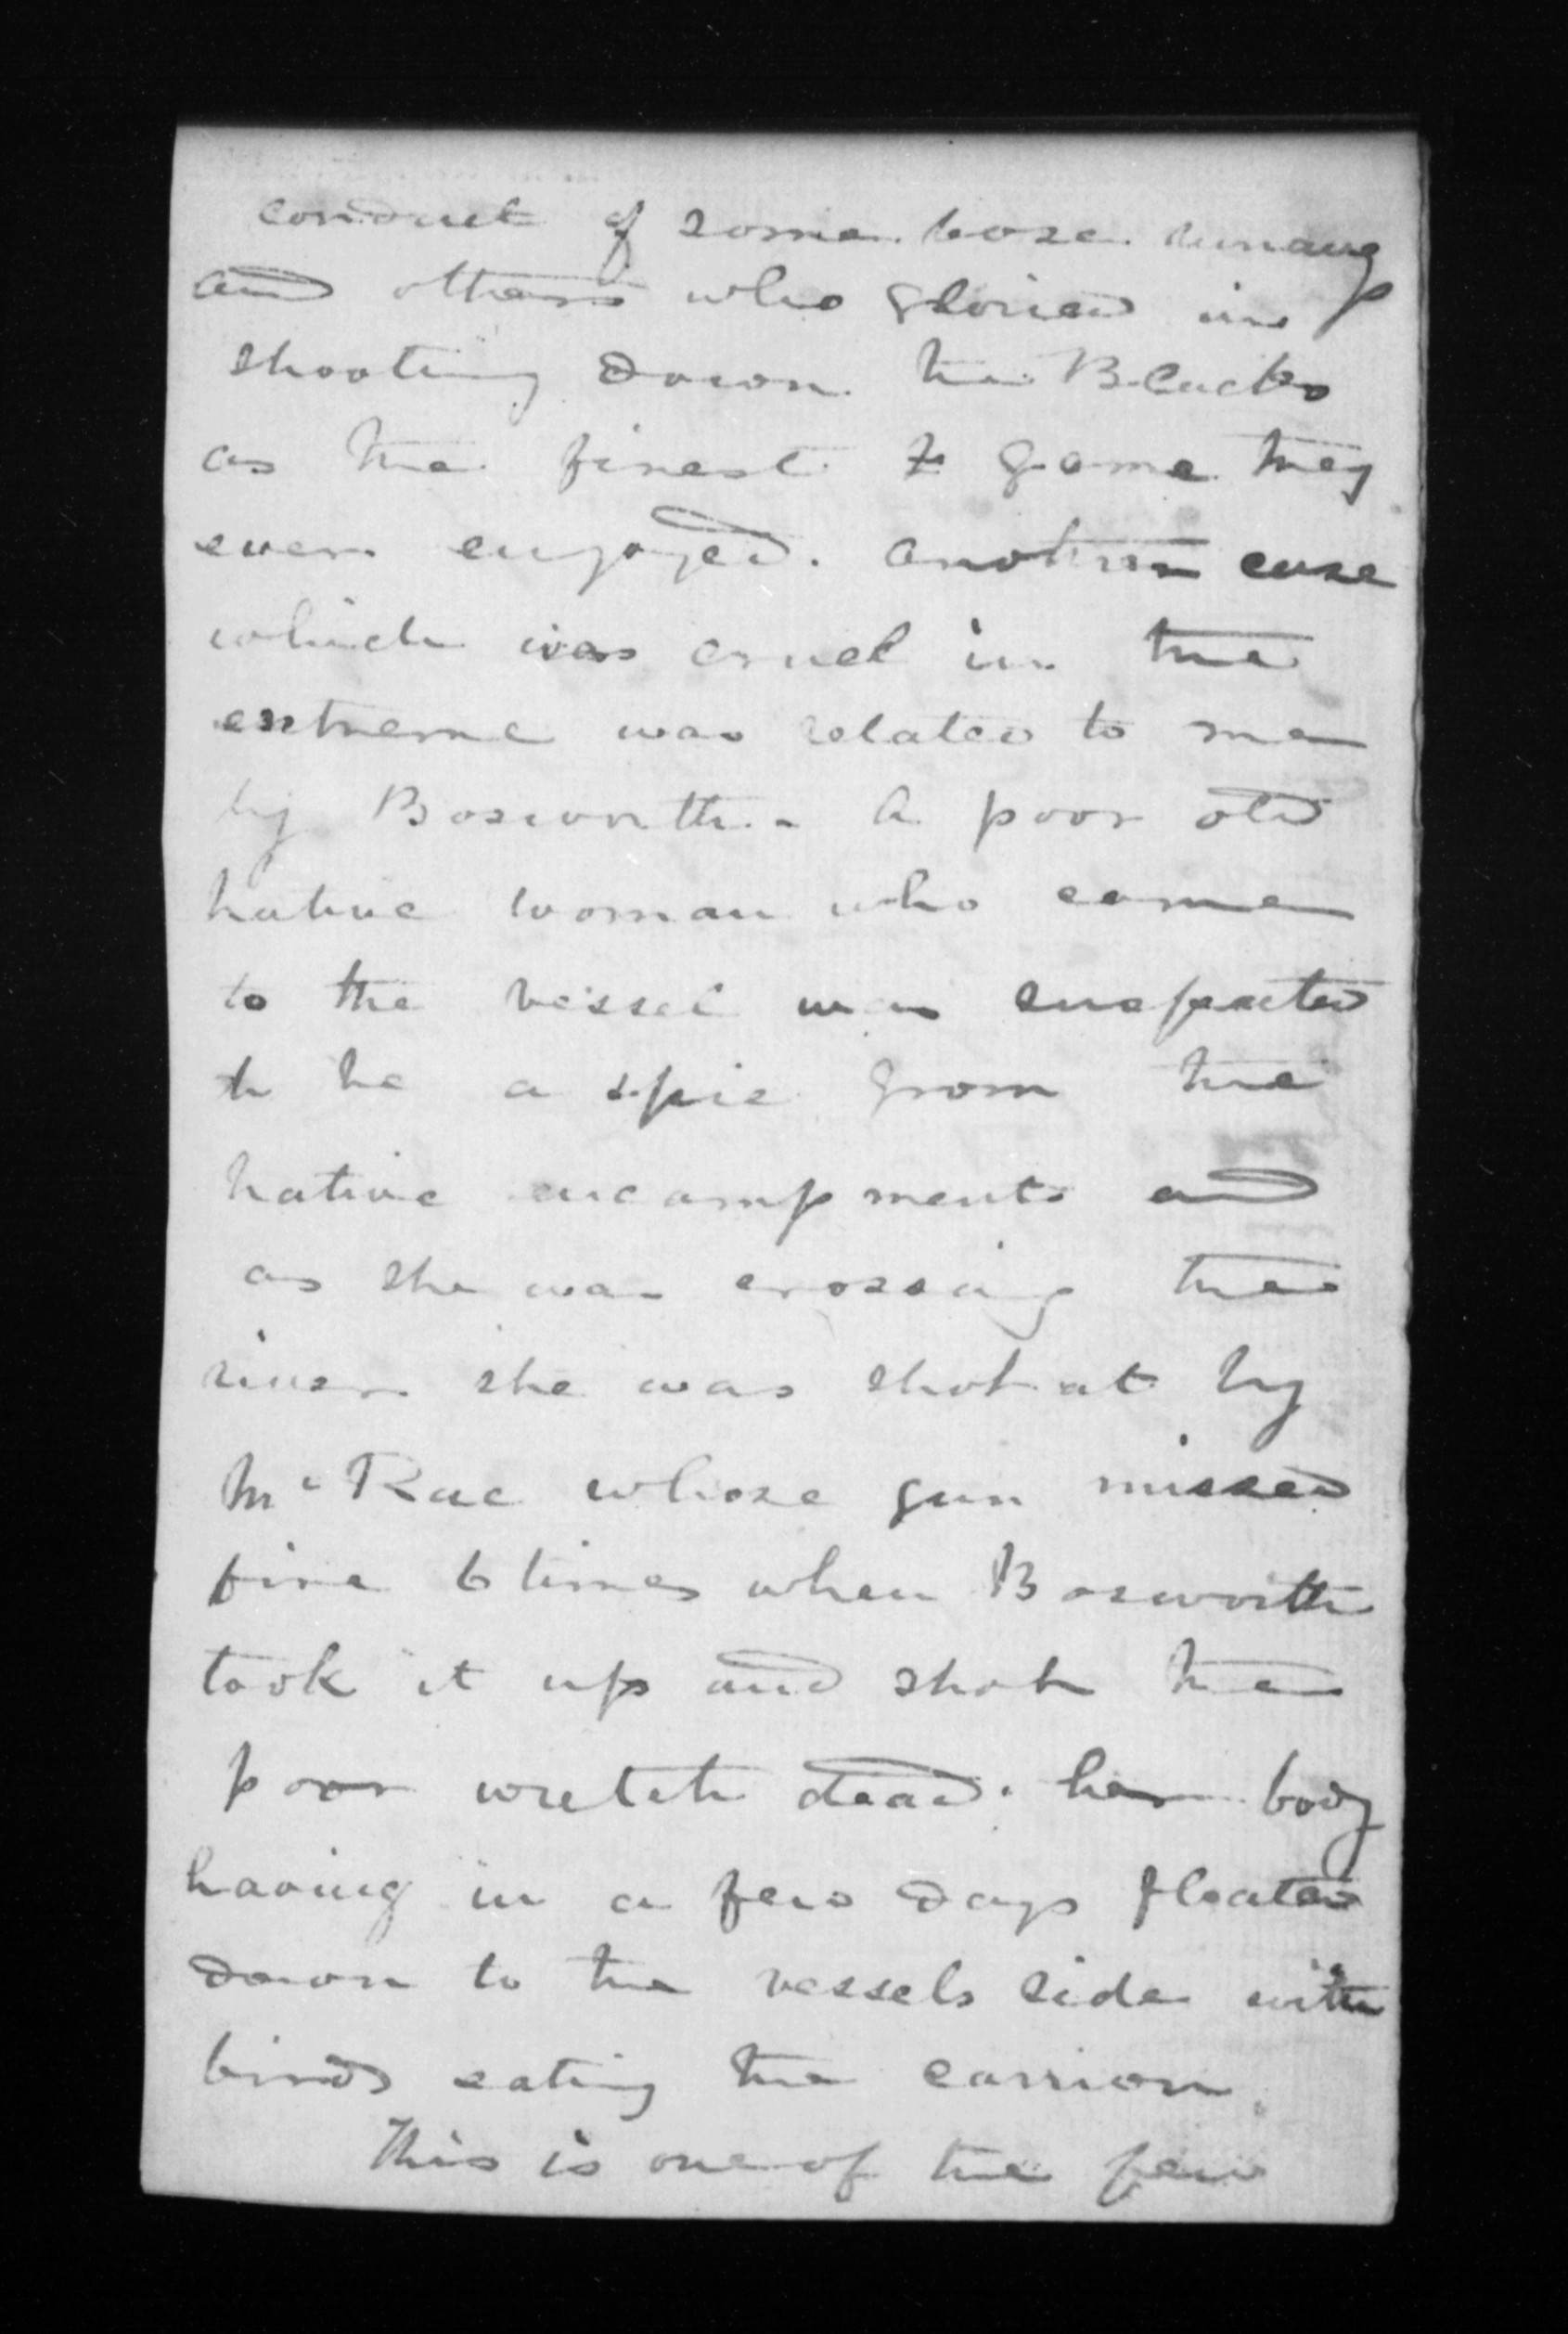 conduct of some base
and others who gloried in
shooting down the Blacks
as the finest game they
ever enjoyed. Another case
which was cruel in the
extreme was related to me
by Bosworth - A poor old
native woman who came
to the vessel was suspected
to be a spie from the
native encampments and
as she was crossing the
river she was shot at by
McRae whose gun missed
fire 6 times when Bosworth
took it up and shot the
poor wretch dead. her body
having in a few days floated
down to the vessels side with
birds eating the carrion.
This is one of the few